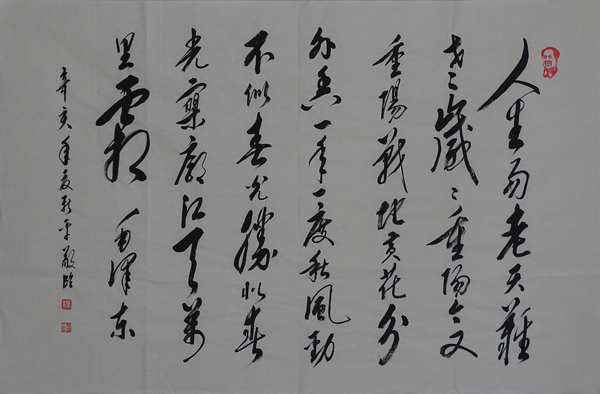 人生易老天難
老歲〻重陽今又
重陽戰地黃花分
外香一年一度秋風勁
不似春光勝似春
光寥廓江天萬
里霜 毛澤東
辛亥年夏 平敬臨